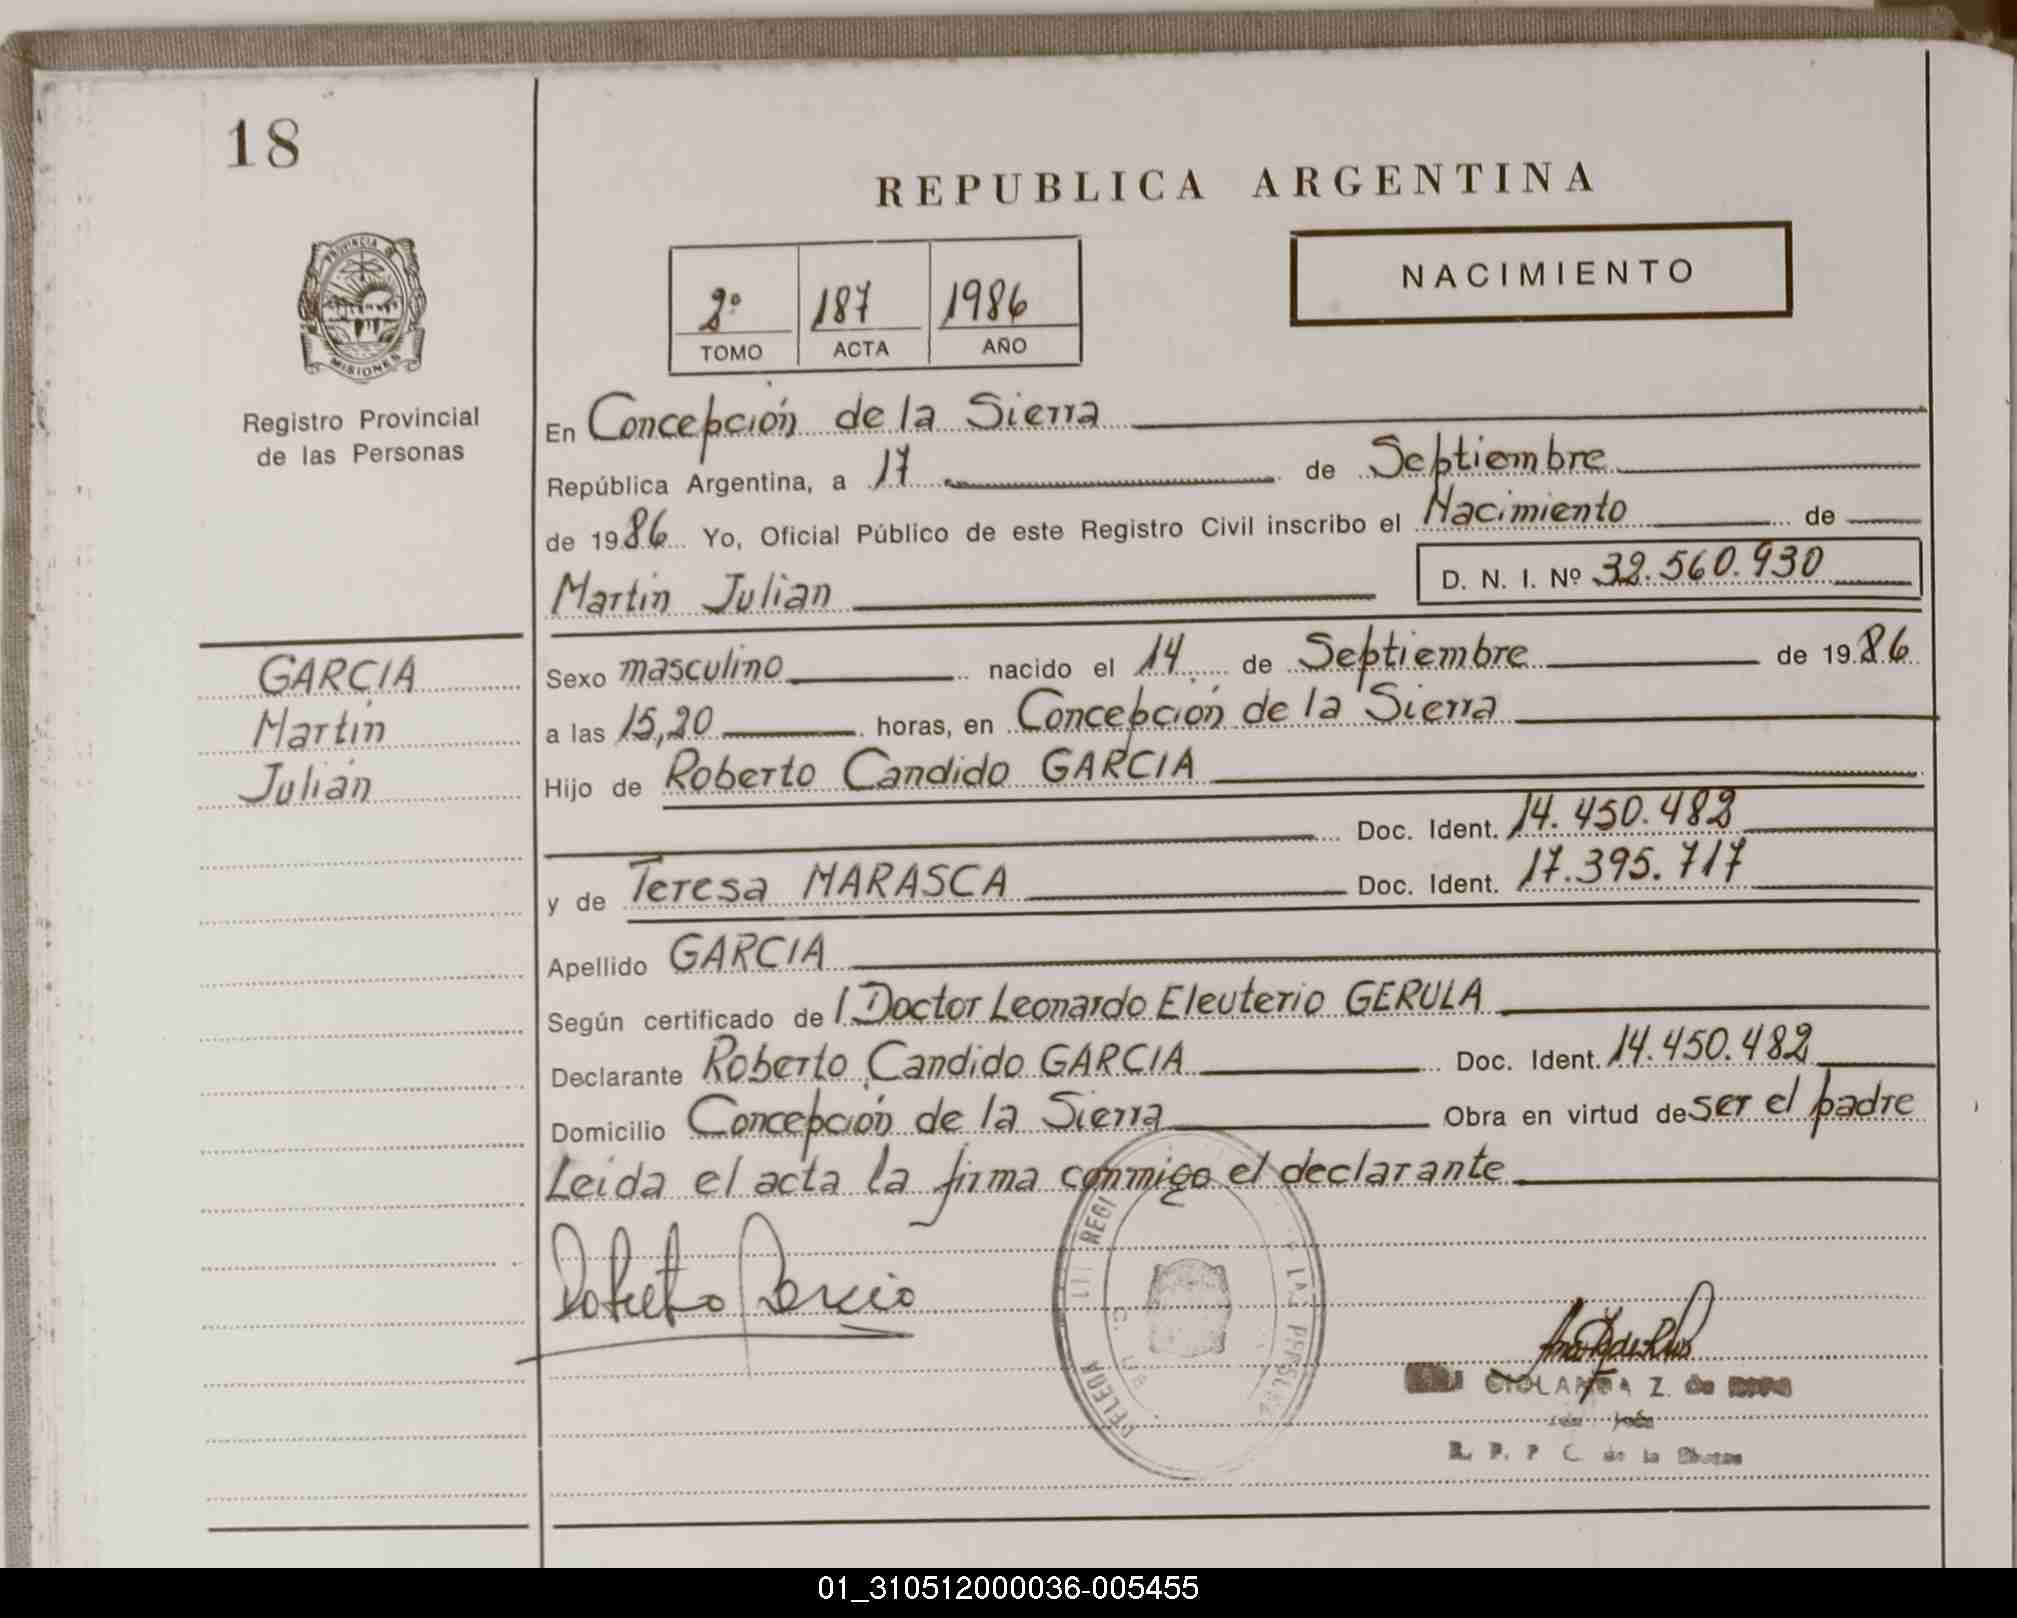 18
REPUBLICA ARGENTINA
PROVINCIA DE
MISIONES
Registro Provincial
de las Personas
2º 187 1986
TOMO ACTA AÑO
NACIMIENTO
En Concepción de la Sierra
República Argentina, a 17 de Septiembre
de 1986 Yo, Oficial Público de este Registro Civil inscribo el Nacimiento de
Martin Julian D. N. I. Nº 32.560.930
GARCIA
Martin
Julian
Sexo masculino nacido el 14 de Septiembre de 1986
a las 15,20 horas, en Concepción de la Sierra
Hijo de Roberto Candido GARCIA
Doc. Ident. 14.450.482
y de Teresa MARASCA Doc. Ident. 17.395.717
Apellido GARCIA
Según certificado del Doctor Leonardo Eleuterio GERULA
Declarante Roberto Candido GARCIA Doc. Ident. 14.450.482
Domicilio Concepción de la Sierra Obra en virtud de ser el padre
Leida el acta la firma conmigo el declarante
Roberto Garcia
Z. de
R. P. P. C. de la
01_310512000036-005455